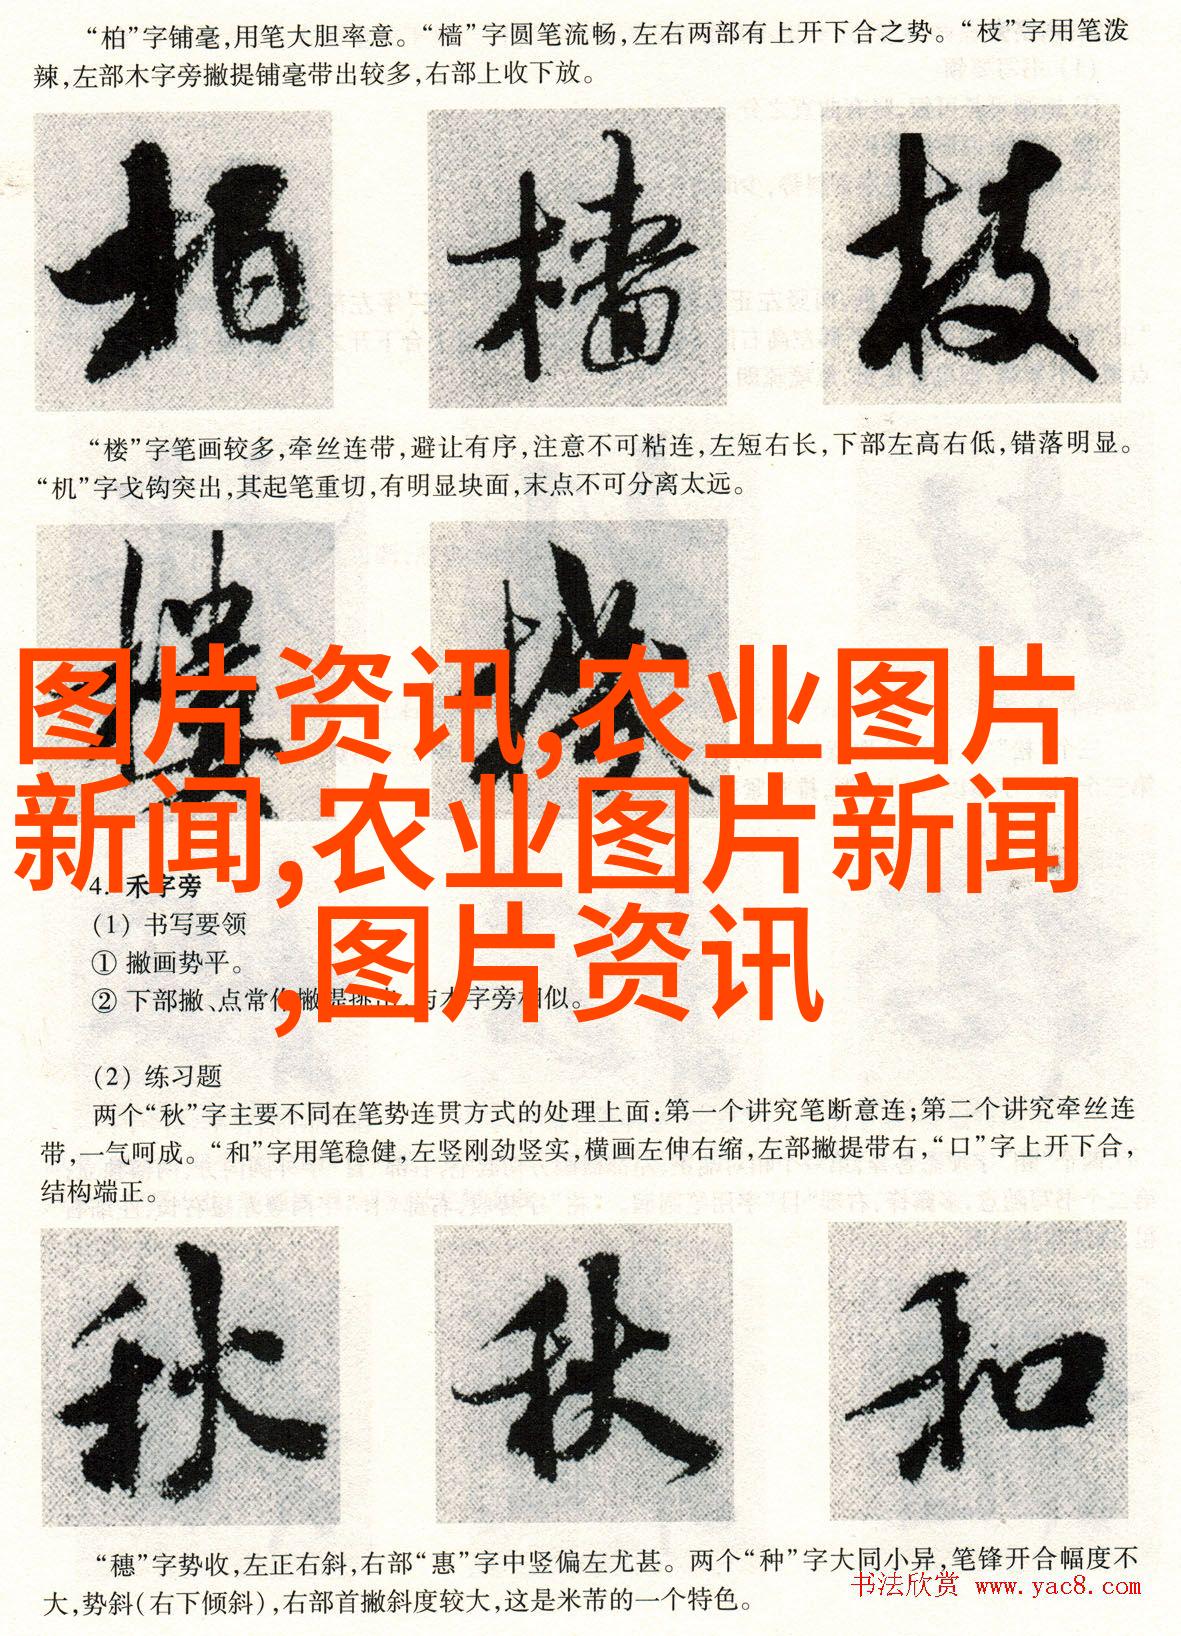 “柏”字铺毫,用笔大胆率意。“樯”字圆笔流畅,左右两部有上开下合之势。“枝”字用笔泼
辣,左部木字旁撇提铺毫带出较多,右部上收下放。
柏 樯 枝
“楼”字笔画较多,牵丝连带,避让有序,注意不可粘连,左短右长,下部左高右低,错落明显。
“机”字戈钩突出,其起笔重切,有明显块面,末点不可分离太远。
图片资讯,农业图片
新闻,农业图片新闻
,图片资讯
4. 禾字旁
(1) 书写要领
① 撇画势平。
② 下部撇、点常作撇提挑出,与木字旁相似。
(2) 练习题
两个“秋”字主要不同在笔势连贯方式的处理上面:第一个讲究笔断意连;第二个讲究牵丝连
带,一气呵成。“和”字用笔稳健,左竖刚劲竖实,横画左伸右缩,左部撇提带右,“口”字上开下合,
结构端正。
秋 秋 和
“穗”字势收,左正右斜,右部“惠”字中竖偏左尤甚。两个“种”字大同小异,笔锋开合幅度不
大,势斜(右下倾斜),右部首撇斜度较大,这是米芾的一个特色。
书法欣赏 www.yac8.com